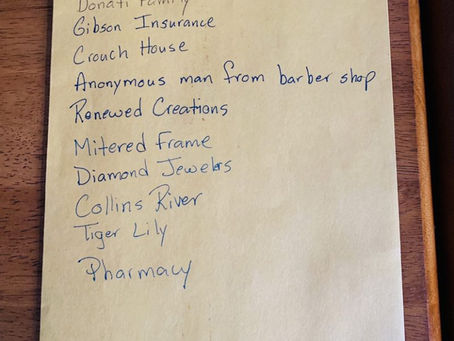 Donati Family
Gibson Insurance
Crouch House
Anonymous man from barber shop
Renewed Creations
Mitered Frame
Diamond Jewelers
Collins River
Tiger Lily
Pharmacy